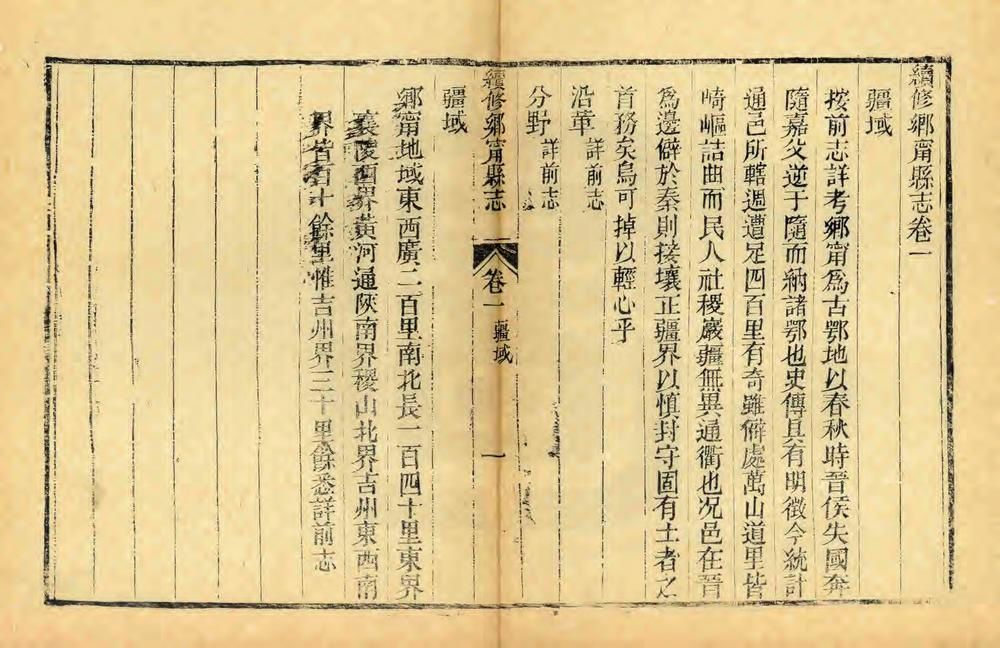 續修鄉甯縣志卷一
疆域
按前志詳考鄉甯爲古鄂地以春秋時晉侯失國奔
隨嘉父逆于隨而納諸鄂也史傳具有明徵今統計
通邑所轄週遭足四百里有奇雖僻處萬山道里皆
崎嶇詰曲而民人社稷嚴疆無異通衢也况邑在晉
爲邊僻於秦則接壤正疆界以慎封守固有土者之
首務矣烏可掉以輕心乎
沿革 詳前志
分野 詳前志
續修鄉甯縣志 卷一 疆域 一
疆域
鄉甯地域東西廣二百里南北長一百四十里東界
襄陵西界黃河通陝南界稷山北界吉州東西南
界皆百十餘里惟吉州界三十里餘悉詳前志